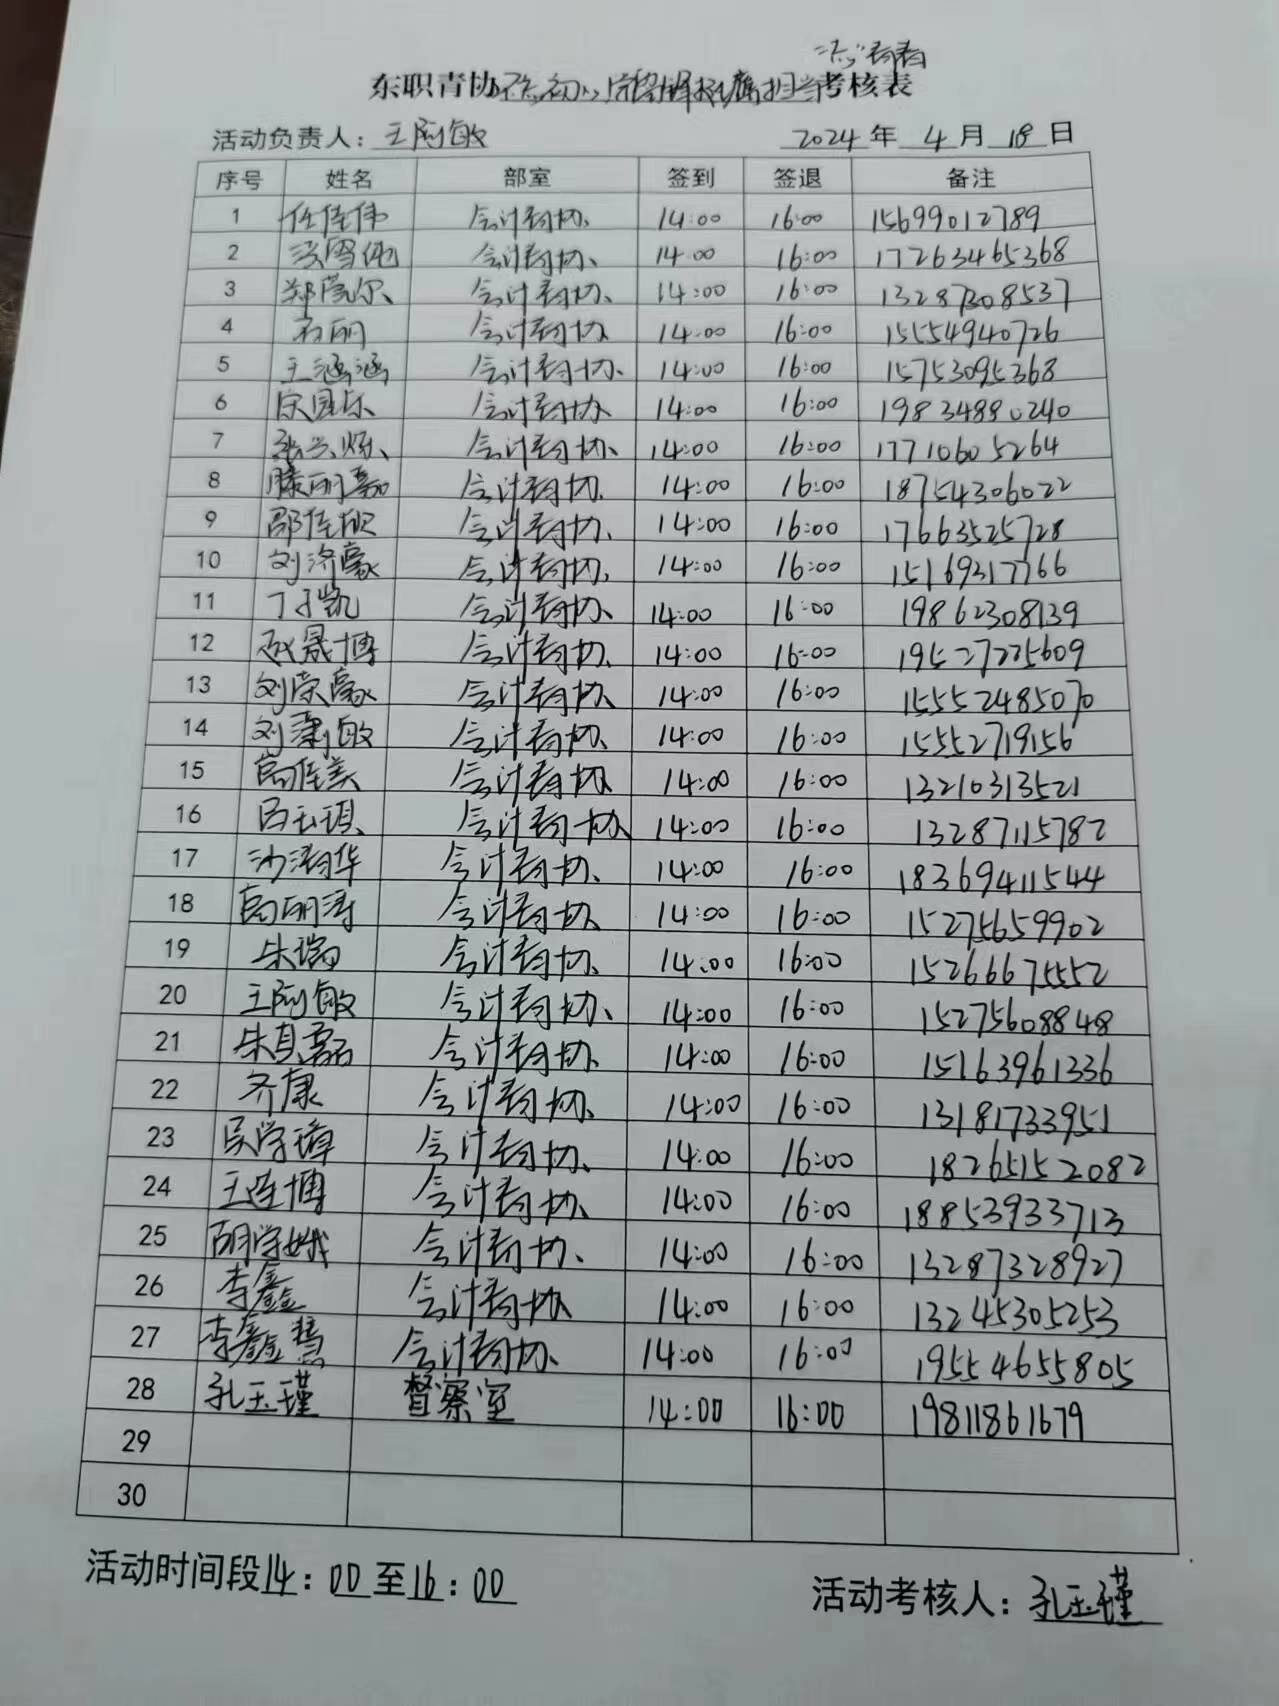 志青春
东职青协不忘初心学雷锋 担当考核表
活动负责人：王闵敏 2024年4月18日
序号 姓名 部室 签到 签退 备注
1 任佳伟 会计青协 14:00 16:00 15699012789
2 会计青协 14:00 16:00 17263465368
3 郑莞尔 会计青协 14:00 16:00 13287308537
4 石丽 会计青协 14:00 16:00 15554940726
5 王涵涵 会计青协 14:00 16:00 15753095368
6 宋国东 会计青协 14:00 16:00 19834880240
7 张兴烁 会计青协 14:00 16:00 17710605264
8 滕丽嘉 会计青协 14:00 16:00 18754306022
9 邵佳 会计青协 14:00 16:00 17663525728
10 刘济豪 会计青协 14:00 16:00 15169317766
11 丁子凯 会计青协 14:00 16:00 19862308139
12 赵晟博 会计青协 14:00 16:00 19527225609
13 刘荣豪 会计青协 14:00 16:00 15552485070
14 刘潇敏 会计青协 14:00 16:00 15552719156
15 高佳美 会计青协 14:00 16:00 13210313521
16 吕玉琪 会计青协 14:00 16:00 13287115782
17 沙清华 会计青协 14:00 16:00 18369411544
18 高丽涛 会计青协 14:00 16:00 15275659902
19 朱瑞 会计青协 14:00 16:00 15266675552
20 王闵敏 会计青协 14:00 16:00 15275608848
21 朱其磊 会计青协 14:00 16:00 15163961336
22 齐康 会计青协 14:00 16:00 13181733951
23 吴学璋 会计青协 14:00 16:00 18265152082
24 王连博 会计青协 14:00 16:00 18853933713
25 胡学娥 会计青协 14:00 16:00 13287328927
26 李鑫 会计青协 14:00 16:00 13245305253
27 李鑫慧 会计青协 14:00 16:00 19554655805
28 孔玉瑾 督察室 14:00 16:00 19811861679
29
30
活动时间段14：00至16：00 活动考核人：孔玉瑾